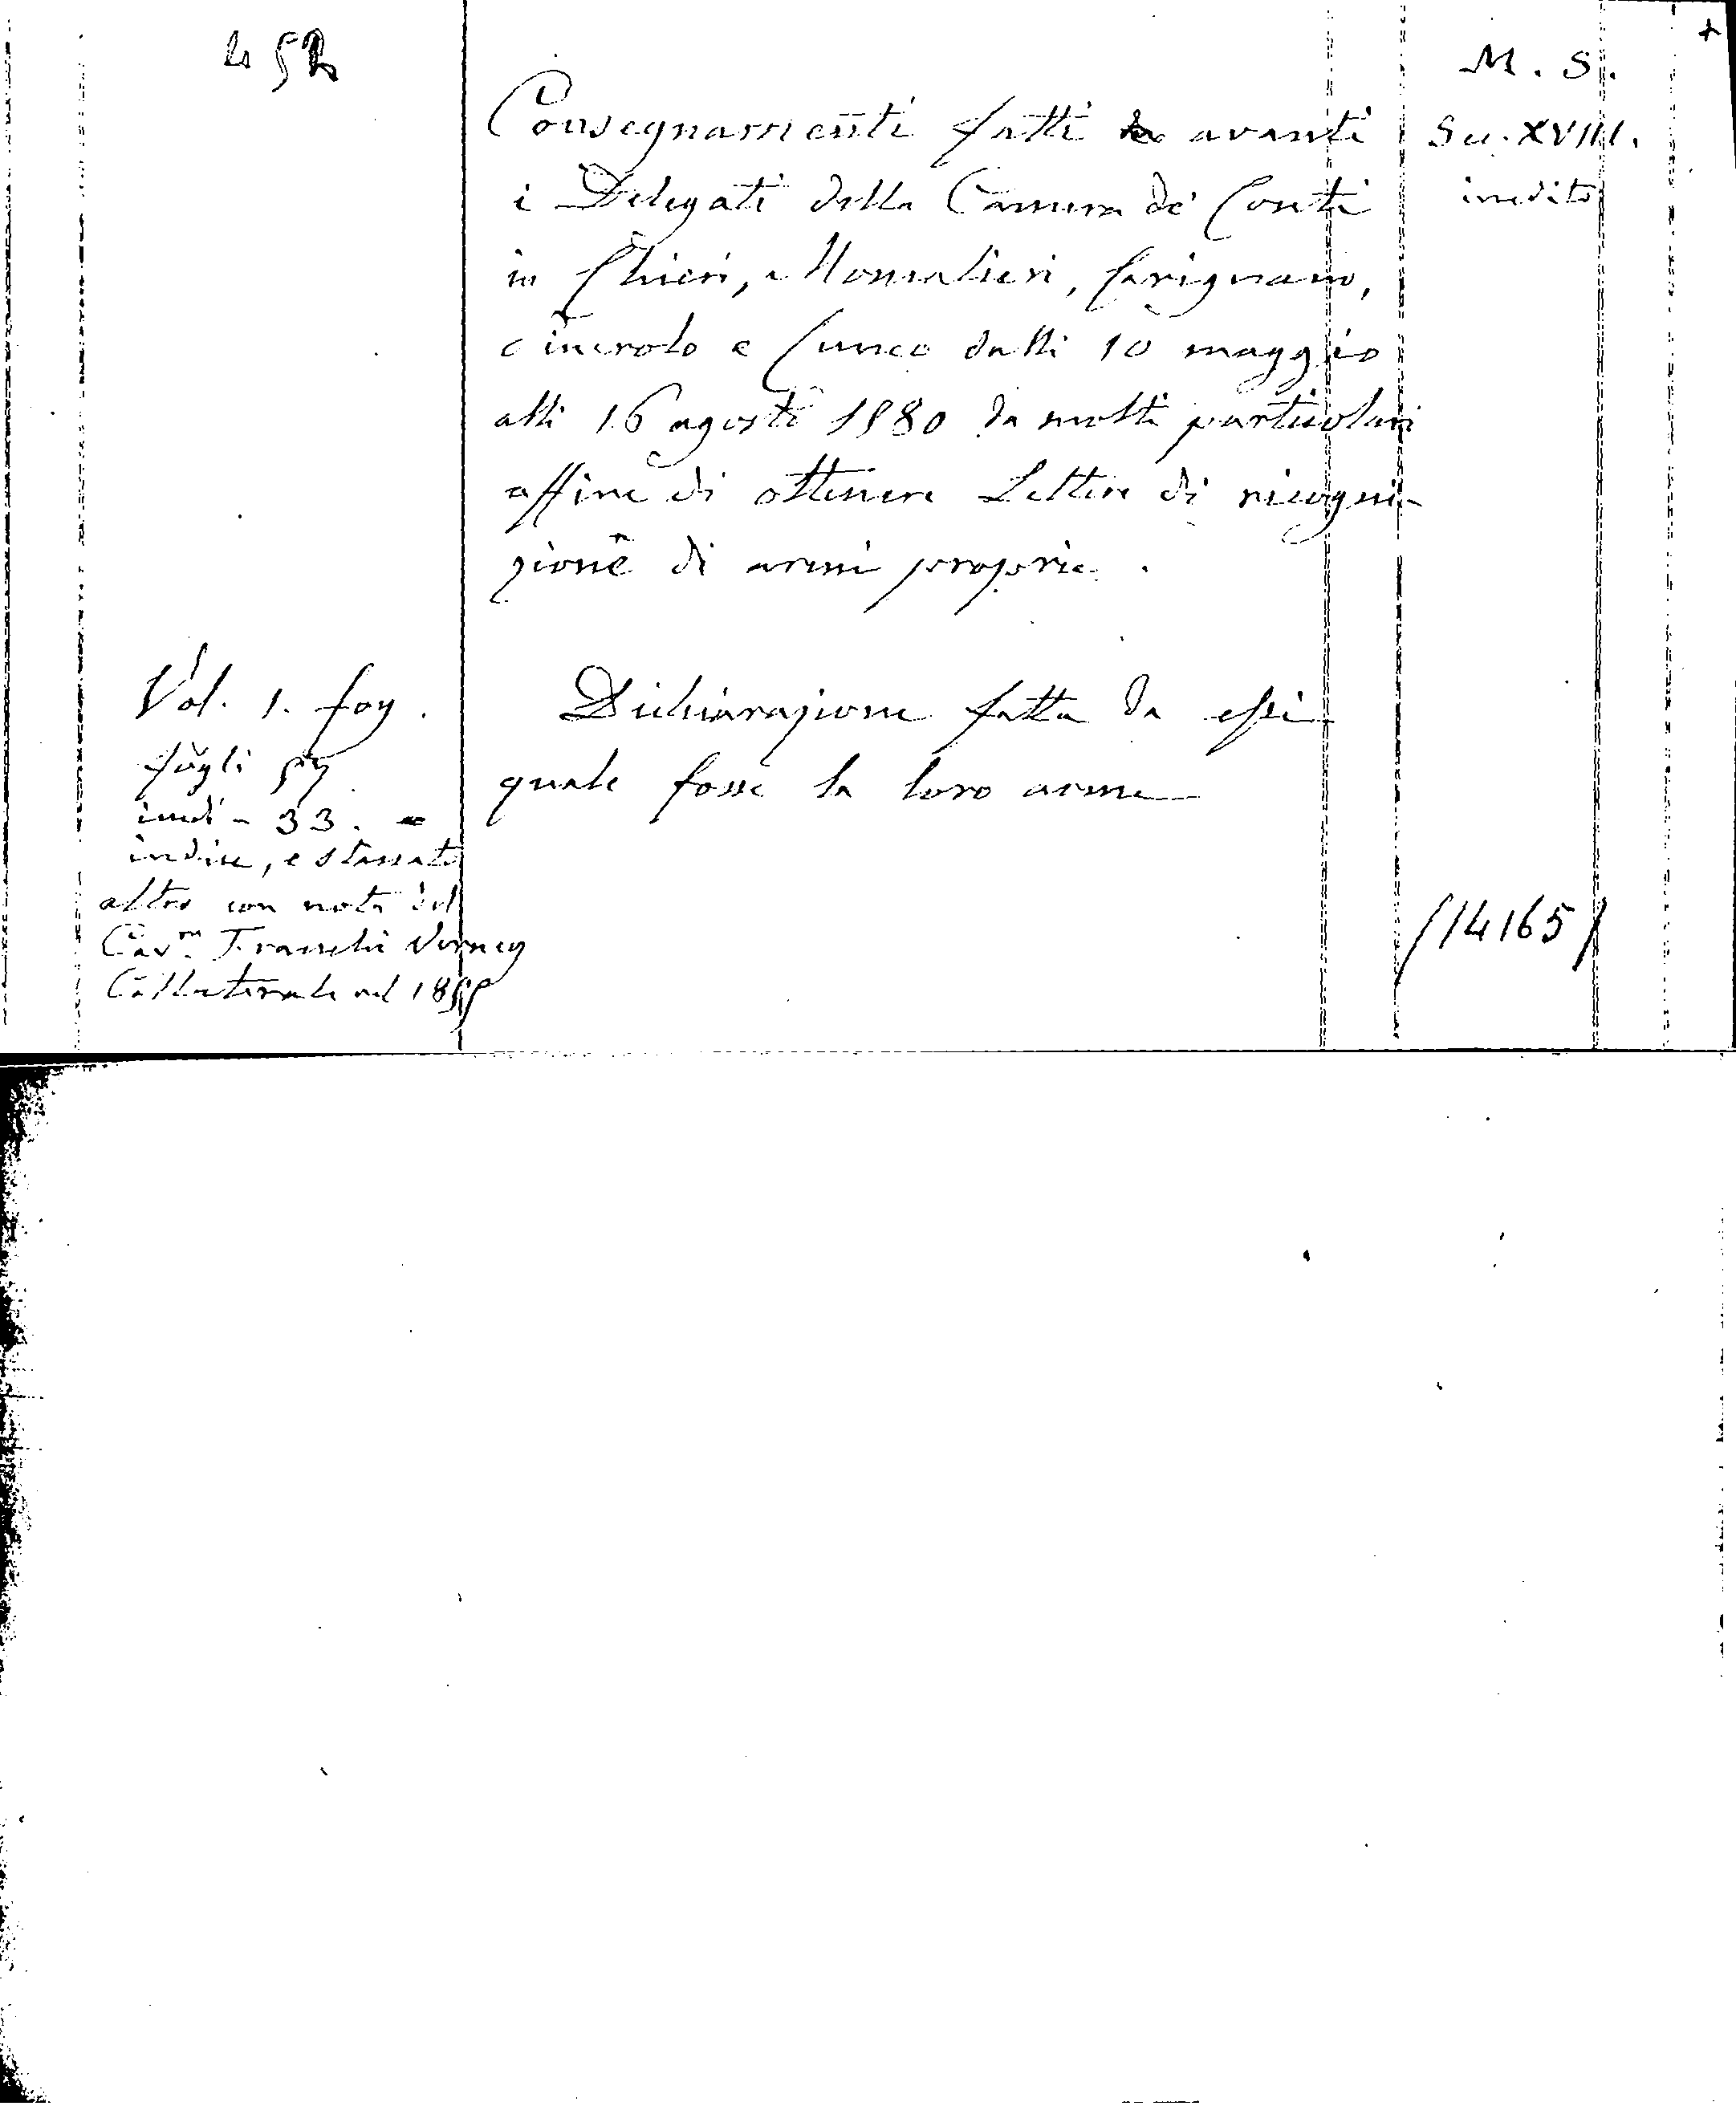 452
M. S.
Consegnamenti fatti avanti
Sec. XVIII.
i Delegati della Camera de' Conti
inedito
in Chieri, Moncalieri, Carignano,
Pinerolo e Cuneo dalli 10 maggio
alli 16 agosto 1580 da molti particolari
affine di ottenere Lettere di ricogni-
zione di armi proprie.
Dichiarazione fatta da essi
quale fosse la loro arme
Vol. 1. fog.
fogli 57
33.
indice, e staccato
altro con note del
Cav.re Franchi Verney
Collaterale nel
(14165)